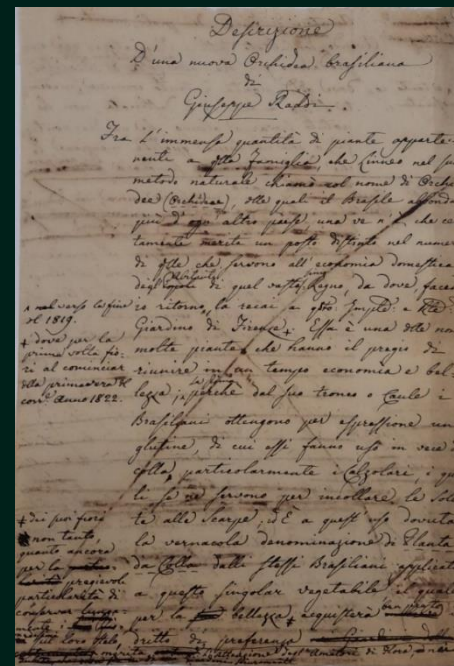 Descrizione
D'una nuova Orchidea brasiliana
di
Giuseppe Raddi.
Fra l'immensa quantità di piante apparte
nenti a Famiglia, che Linneo nel su
metodo naturale chiamò col nome di Orchi
dee (Orchideae), delle quali il Brasile abbonda
più d'ogn'altro paese, una ve n'è, che ce
tamente merita un posto distinto nel numer
di che servono all'economia domestica
degl' Abitanti di quel vasto Regno, da dove, facen
do ritorno, la recai a Imple: e
Giardino di Firenze + Essa è una delle non
molte piante, che hanno il pregio di
riunire in un tempo economia e bel
lezza; perchè dal suo tronco o Caule i
Brasiliani ottengono per espressione un
glutine, di cui essi fanno uso in vece di
colla, particolarmente i Calzolari, i qua
li se ne servono per incollare le Sola
te alle Scarpe; ed È a quest'uso dovuta
la vernacola denominazione di Planta
da Colla dalli stessi Brasiliani applicata
a questo singolar vegetabile il quale
per la bellezza acquisterà ben presto
dritto di preferenza
nel verso la fine
del 1819.
+ dove per la
prima volta fio-
rì al cominciar
della primavera del
corr. Anno 1822.
dei suoi fiori
non tanto,
quanto ancora
per la
pregievole
particolarità di
conservar